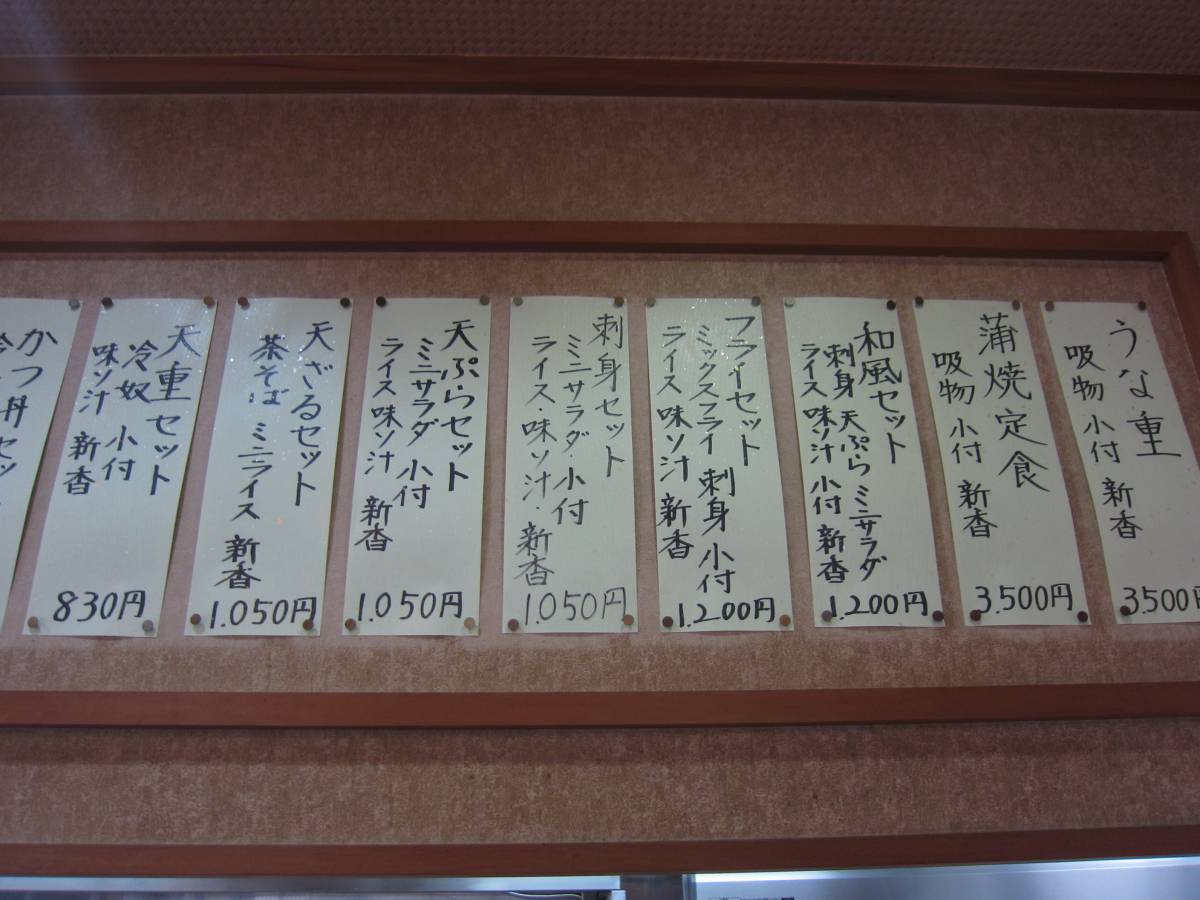 うな重
吸物 小付 新香
3.500円
蒲焼定食
吸物 小付 新香
3.500円
和風セット
刺身 天ぷら ミニサラダ
ライス 味ソ汁 小付 新香
1.200円
フライセット
ミックスフライ 刺身 小付
ライス 味ソ汁 新香
1.200円
刺身セット
ミニサラダ・小付
ライス・味ソ汁・新香
1.050円
天ぷらセット
ミニサラダ 小付
ライス 味ソ汁 新香
1.050円
天ざるセット
茶そば ミニライス 新香
1.050円
天重セット
冷奴 小付
味ソ汁 新香
830円
かつ丼セット